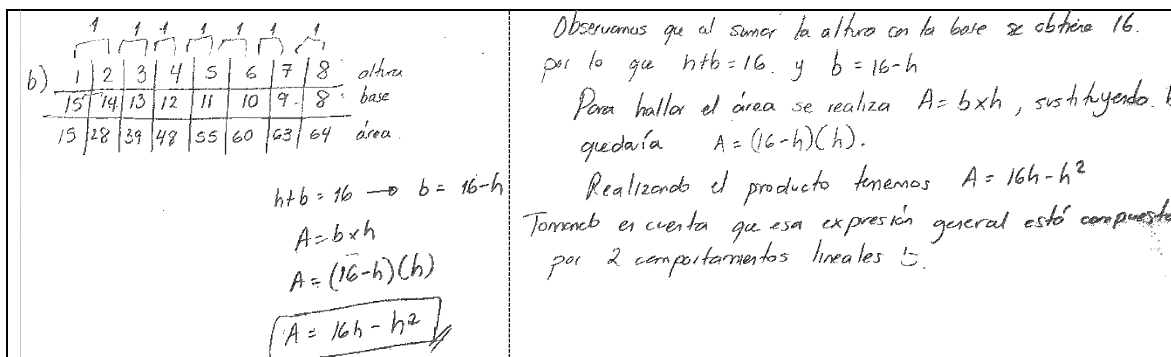 1 1 1 1 1 1 1
b) 1 | 2 | 3 | 4 | 5 | 6 | 7 | 8 altura
15 | 14 | 13 | 12 | 11 | 10 | 9 | 8 base
15 | 28 | 39 | 48 | 55 | 60 | 63 | 64 área.
h+b = 16 → b = 16-h
A = b×h
A = (16-h)(h)
A = 16h - h²
Observamos que al sumar la altura con la base se obtiene 16.
por lo que h+b = 16. y b = 16-h
Para hallar el área se realiza A = b×h, sustituyendo.
quedaría A = (16-h)(h).
Realizando el producto tenemos A = 16h - h²
Tomando en cuenta que esa expresión general está compuesta
por 2 comportamientos lineales